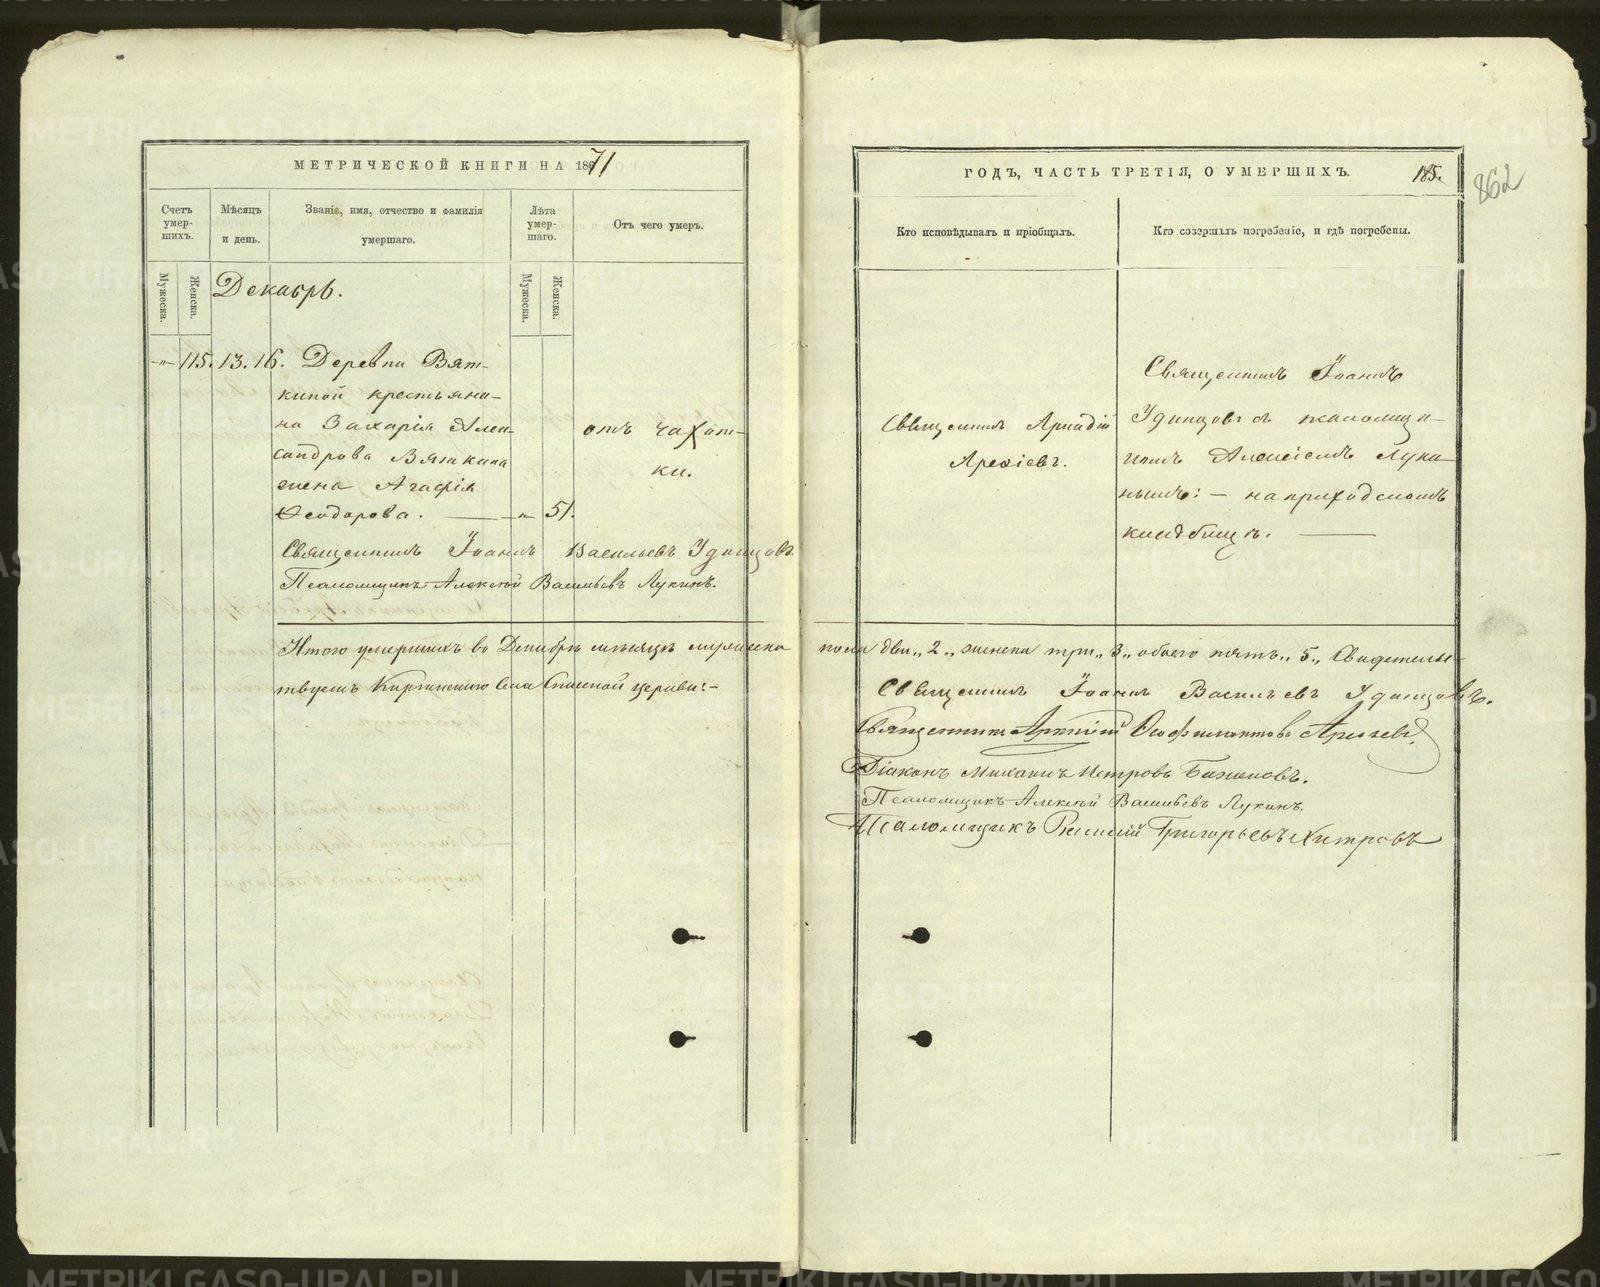 МЕТРИЧЕСКОЙ КНИГИ НА 1871
Счетъ умер-шихъ.
Мѣсяцъ и день.
Званіе, имя, отчество и фамилія умершаго.
Лѣта умер-шаго.
Отъ чего умеръ.
Мужеска.
Женска.
Мужеска.
Женска.
Декабрь.
-„- 115. 13. 16. Деревни Вят-
киной крестьяни-
на Захарія Алек-
сандрова Вяткина
жена Агафія
Ѳеодорова. — -„- 51.
отъ чахот-
ки.
Священникъ Іоаннъ Васильевъ Удинцовъ.
Псаломщикъ Алексѣй Васильевъ Лукинъ.
ГОДЪ, ЧАСТЬ ТРЕТІЯ, О УМЕРШИХЪ.
185.
862
Кто исповѣдывалъ и пріобщалъ.
Кто совершалъ погребеніе, и гдѣ погребены.
Священникъ Аркадій
Арефіевъ.
Священникъ Іоаннъ
Удинцовъ съ псаломщи-
комъ Алексіемъ Луки-
нымъ: — на приходскомъ
кладбищѣ. —
Итого умершихъ въ Декабрѣ мѣсяцѣ мужеска пола два „2„ женска три „3„ обоего пять „5„ Свидетельс-
твуемъ Киргинскаго Села Спасской церкви:-
Священникъ Іоаннъ Васильевъ Удинцовъ.
Священникъ Аркадій Ѳеофилактовъ Арефьевъ
Діаконъ Михаилъ Петровъ Баженовъ.
Псаломщикъ Алексѣй Васильевъ Лукинъ.
Псаломщикъ Григорьевъ Хитровъ
METRIKI.GASO-URAL.RU